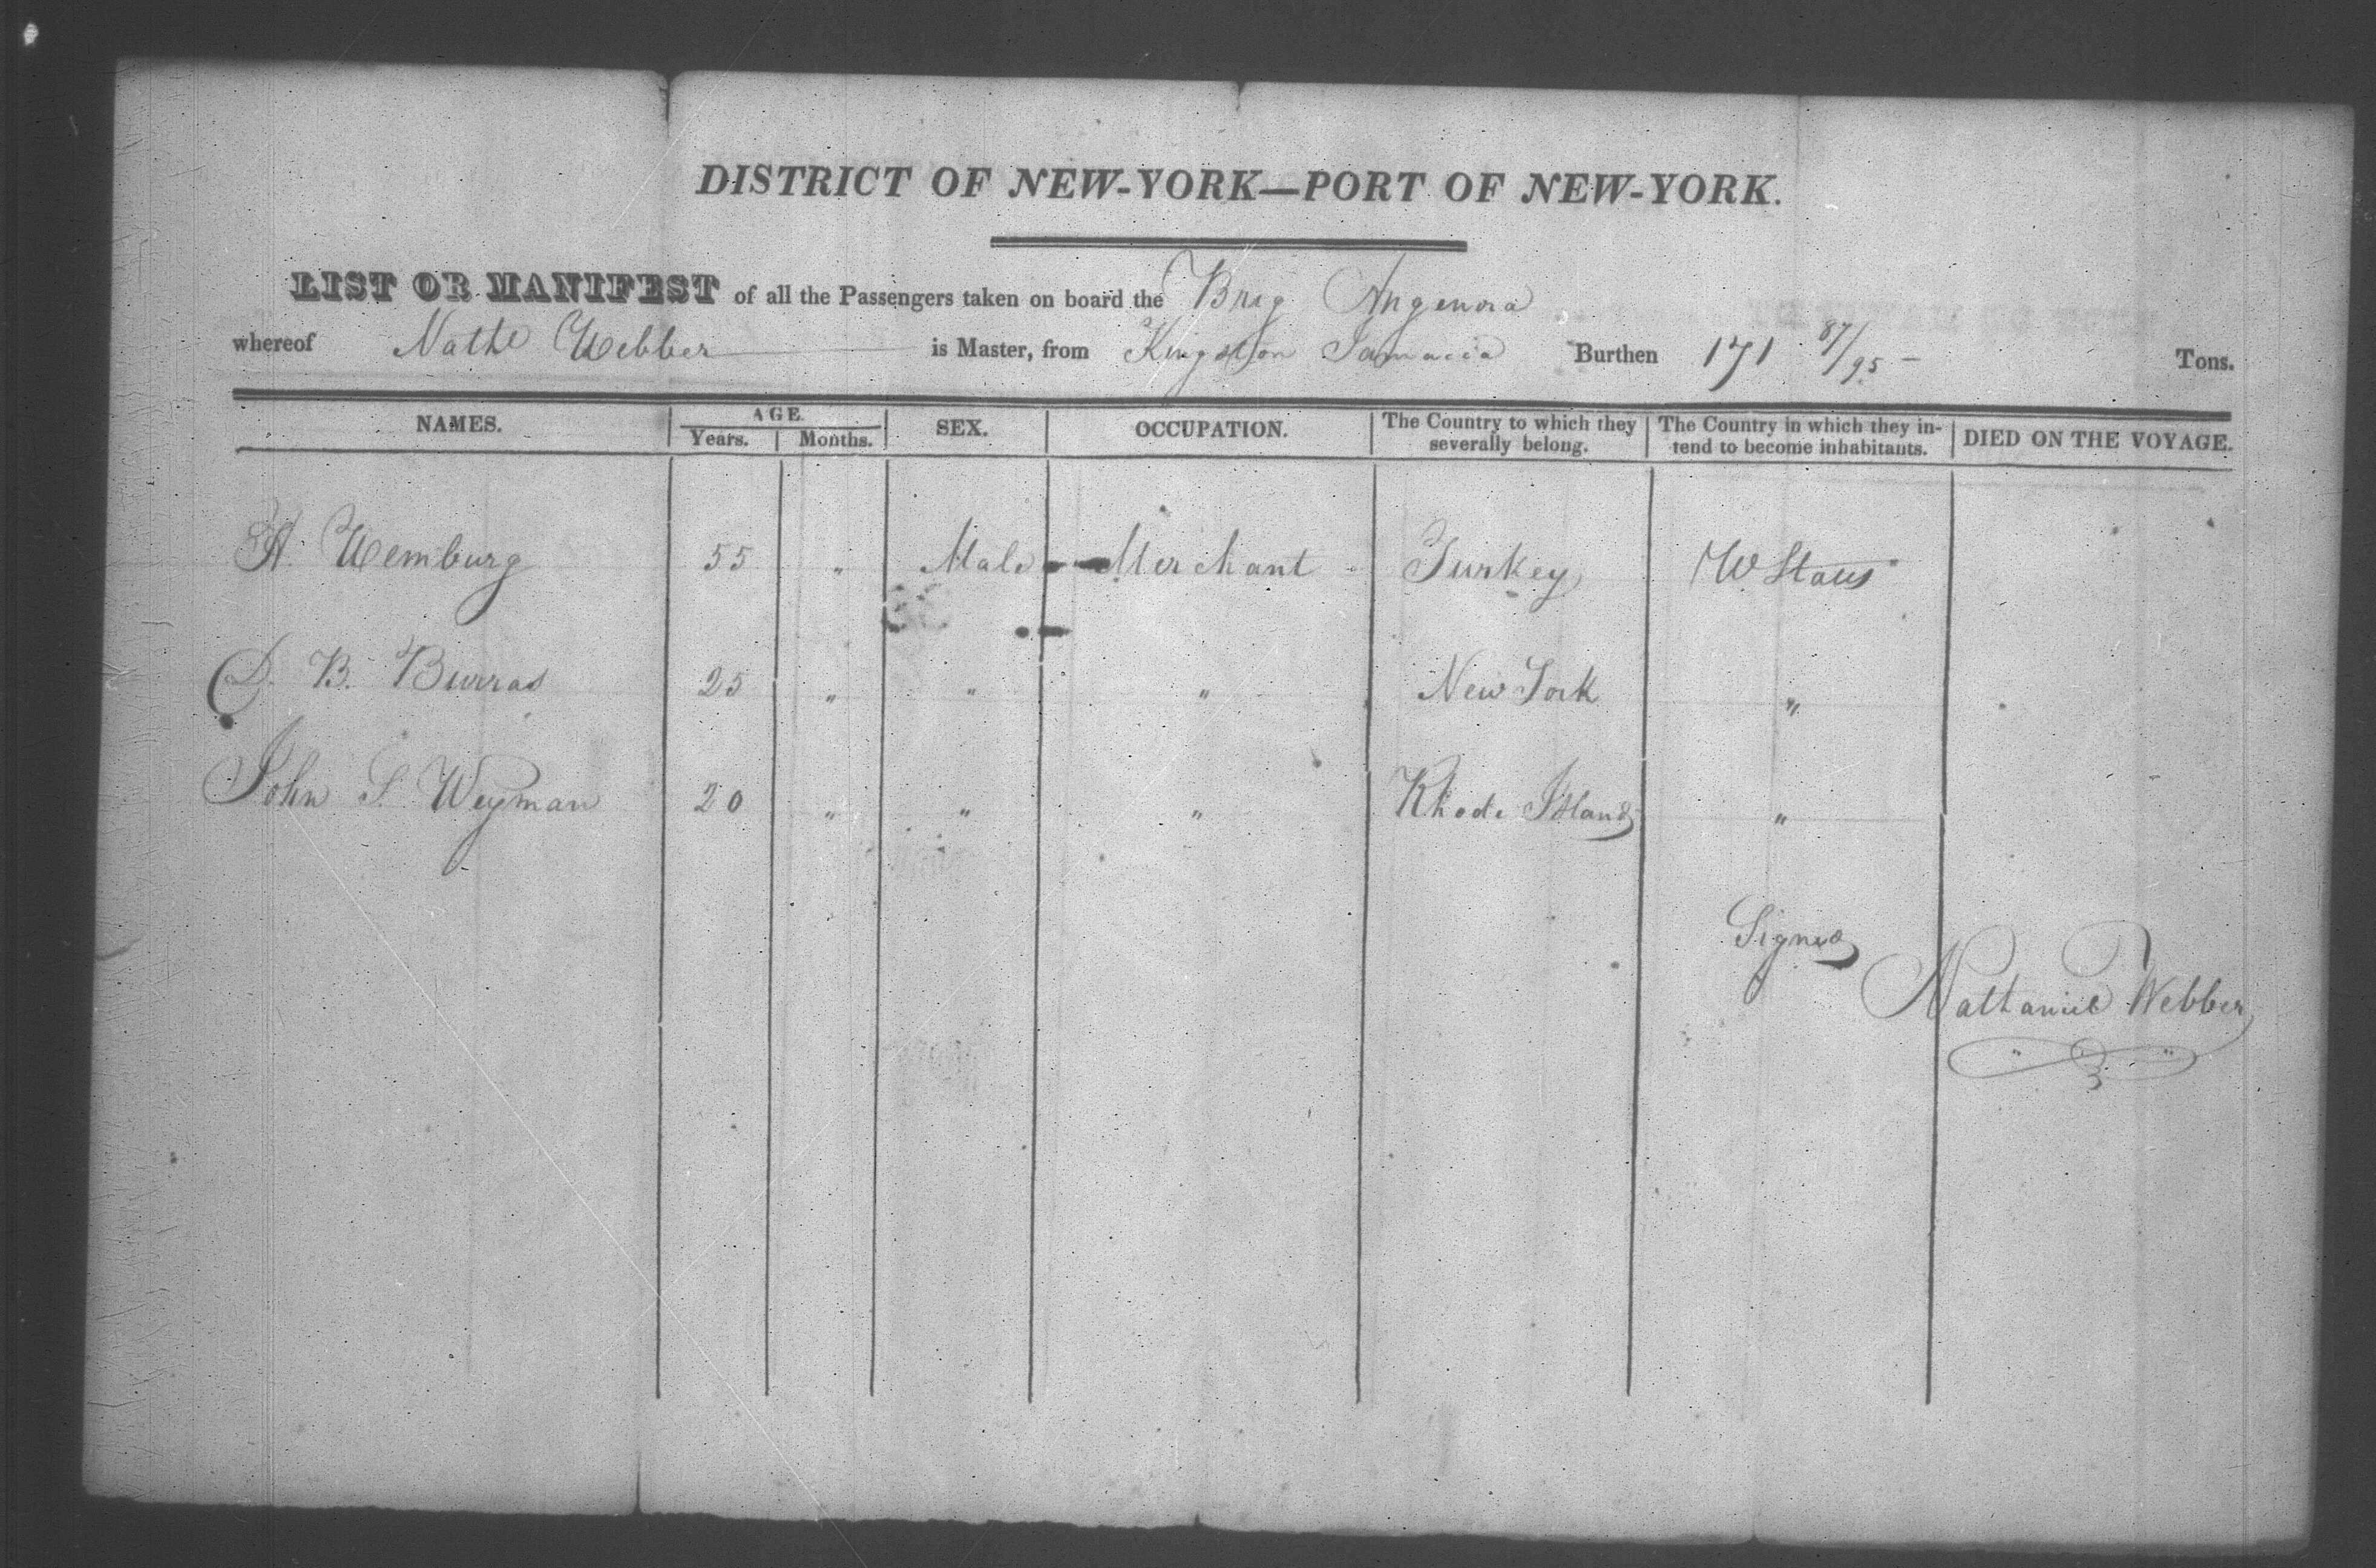 DISTRICT OF NEW-YORK—PORT OF NEW-YORK.
LIST OR MANIFEST of all the Passengers taken on board the Brig Angenora
whereof Nathl Webber is Master, from Kingston Jamacia Burthen 171 87/95 Tons.
NAMES. AGE. Years. Months. SEX. OCCUPATION. The Country to which they severally belong. The Country in which they intend to become inhabitants. DIED ON THE VOYAGE.
Wemburg 55 " Male Merchant Turkey States
D. B. Burras 25 " " " New York "
John S. Weyman 20 " " " Rhode Island "
Signed
Nathaniel Webber